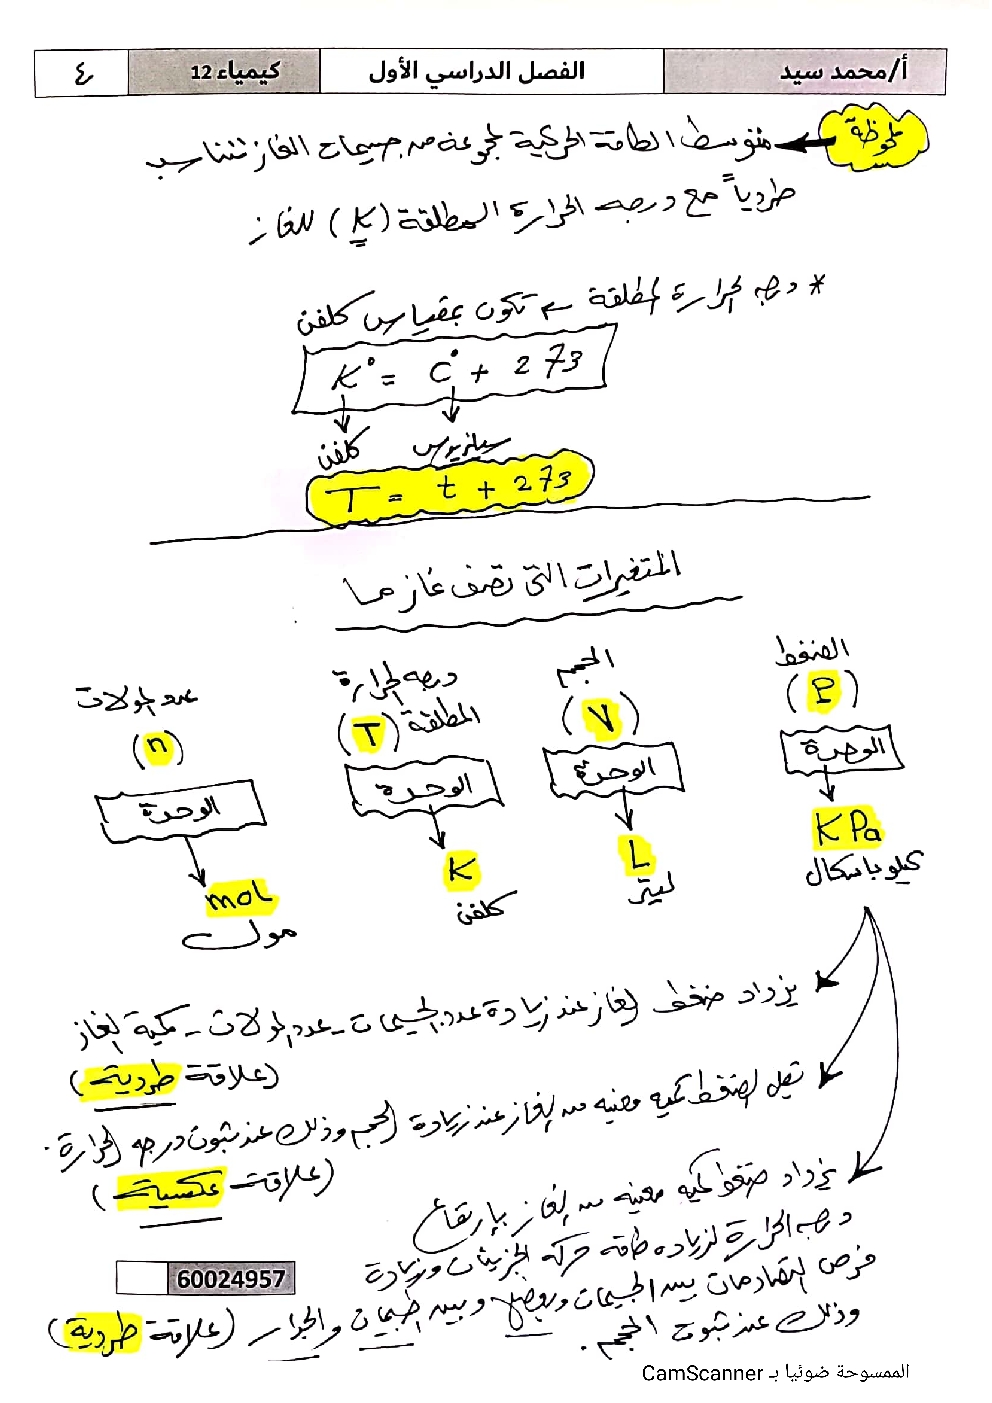 أ/محمد سيد الفصل الدراسي الأول كيمياء 12 ٤
ملحوظة متوسط الطاقة الحركية لمجموعة من جسيمات الغاز تتناسب
طردياً مع درجه الحرارة المطلقة (K) للغاز
* درجه الحرارة المطلقة تكون بمقياس كلفن
K° = C° + 273
كلفن سيلزيوس
T = t + 273
المتغيرات التى تصف غاز ما
الضغط الحجم درجه الحرارة المطلقة عدد المولات
(P) (V) (T) (n)
الوحدة الوحدة الوحدة الوحدة
KPa L K mol
كيلو باسكال ليتر كلفن مول
يزداد ضغط الغاز عند زيادة عدد الجسيمات - عدد المولات - كمية الغاز
(علاقة طردية)
تقل الضغط كميه معينه من الغاز عند زيادة الحجم وذلك عند ثبوت درجه الحرارة.
(علاقة عكسية)
يزداد ضغط كميه معينه من الغاز بإرتفاع
درجه الحرارة لزياده طاقه حركه الجزيئات وزيادة
فرص التصادمات بين الجسيمات وبعضها وبين الجسيمات والجدار (علاقة طردية)
وذلك عند ثبوت الحجم.
60024957
الممسوحة ضوئيا بـ CamScanner